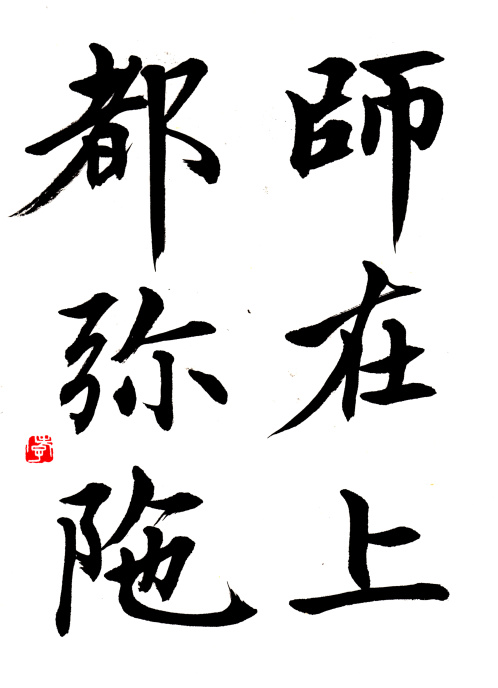 師在上
都弥陁